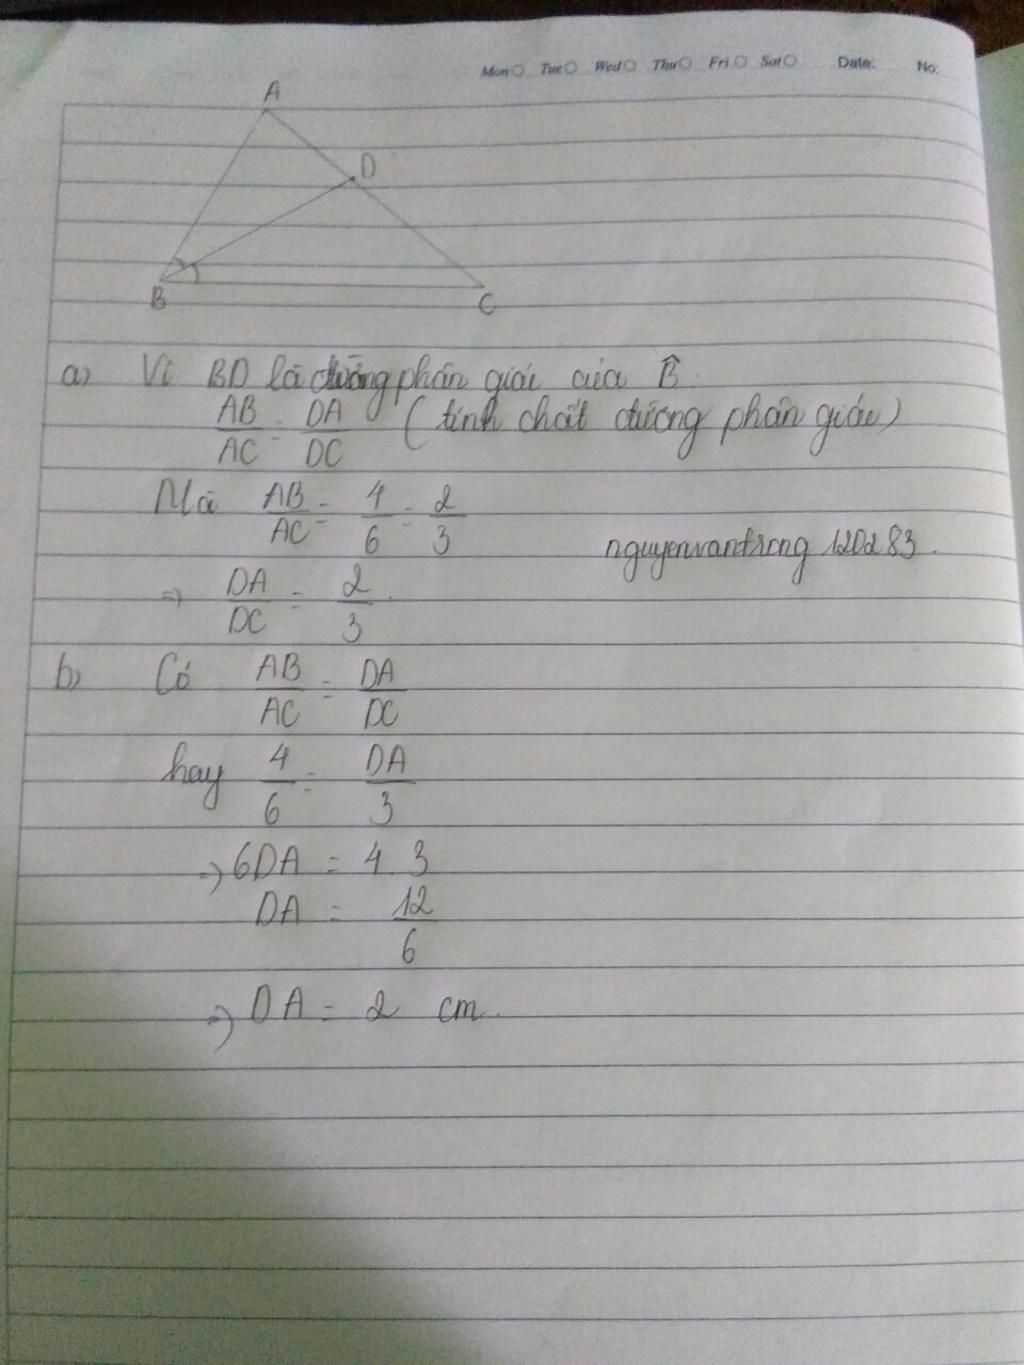 Mon Tue Wed Thu Fri Sat Date: No:
A
D
B
C
a) Vì BD là đường phân giác của B̂.
AB/AC = DA/DC (tính chất đường phân giác)
Mà AB/AC = 4/6 = 2/3
nguyenvantrong 120283.
=> DA/DC = 2/3.
b) Có AB/AC = DA/DC
hay 4/6 = DA/3
=> 6DA = 4.3
DA = 12/6
=> DA = 2 cm.